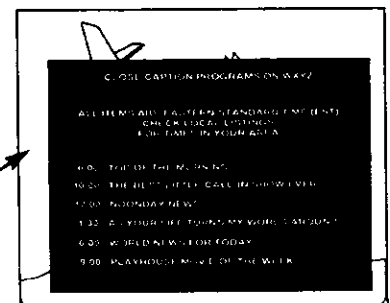 CLOSE CAPTION PROGRAMS ON WXYZ
ALL ITEMS ARE EASTERN STANDARD TIME (EST)
CHECK LOCAL LISTINGS
FOR TIMES IN YOUR AREA
6:00 TOP OF THE MORNING
10:00 THE BEST LITTLE CALL IN SHOW EVER
12:00 NOONDAY NEWS
1:30 AS YOUR LIFE TURNS MY WORLD AROUND
6:00 WORLD NEWS FOR TODAY
9:00 PLAYHOUSE MOVIE OF THE WEEK